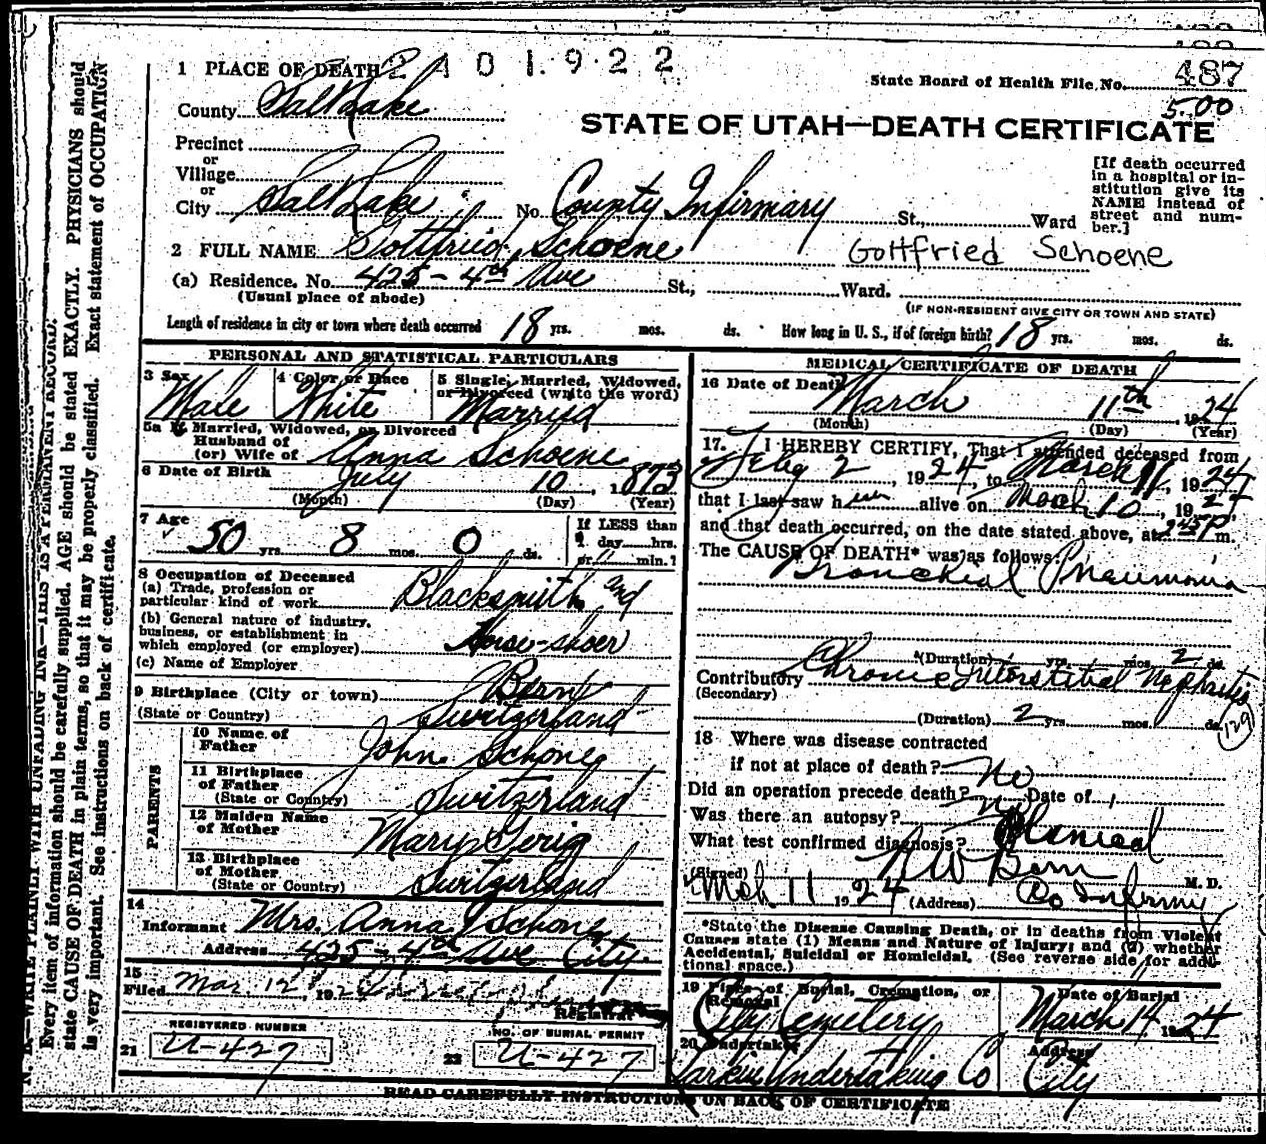 2 4 0 1 9 2 2
1 PLACE OF DEATH
State Board of Health File No. 487
County Salt Lake
5.00
STATE OF UTAH—DEATH CERTIFICATE
Precinct
or
Village
or
City Salt Lake No. County Infirmary St., Ward
[If death occurred
in a hospital or in-
stitution give its
NAME instead of
street and num-
ber.]
2 FULL NAME Gottfried Schoene Gottfried Schoene
(a) Residence. No. 425 - 4th Ave St., Ward.
(Usual place of abode) (IF NON-RESIDENT GIVE CITY OR TOWN AND STATE)
Length of residence in city or town where death occurred 18 yrs. mos. ds. How long in U. S., if of foreign birth? 18 yrs. mos. ds.
PERSONAL AND STATISTICAL PARTICULARS
3 Sex Male
4 Color or Race White
5 Single, Married, Widowed,
or Divorced (write the word)
Married
5a If Married, Widowed, or Divorced
Husband of
(or) Wife of Anna Schoene
6 Date of Birth July 10, 1873
(Month) (Day) (Year)
7 Age 50 yrs. 8 mos. 0 ds.
If LESS than
day hrs.
or min.?
8 Occupation of Deceased
(a) Trade, profession or
particular kind of work Blacksmith and
(b) General nature of industry,
business, or establishment in
which employed (or employer) Horse-shoer
(c) Name of Employer
9 Birthplace (City or town) Bern
(State or Country) Switzerland
PARENTS
10 Name of
Father John Schoneg
11 Birthplace
of Father
(State or Country) Switzerland
12 Maiden Name
of Mother Mary Gerig
13 Birthplace
of Mother
(State or Country) Switzerland
14
Informant Mrs. Anna Schone
Address 425 - 4th Ave City
15
Filed Mar. 12, 192
Registrar
REGISTERED NUMBER
21 U-427
NO. OF BURIAL PERMIT
22 U-427
MEDICAL CERTIFICATE OF DEATH
16 Date of Death March 11th 1924
(Month) (Day) (Year)
17. I HEREBY CERTIFY, That I attended deceased from
Feby 2, 1924, to March 11, 1924
that I last saw him alive on March 10, 1924
and that death occurred, on the date stated above, at 2.45 P. m.
The CAUSE OF DEATH* was as follows:
Bronchial Pneumonia
(Duration) yrs. mos. 2 ds.
Contributory Chronic Interstitial Nephritis
(Secondary)
(Duration) 2 yrs. mos. ds.
129
18 Where was disease contracted
if not at place of death? No
Did an operation precede death? no Date of
Was there an autopsy?
What test confirmed diagnosis?
(Signed) M. D.
Mch 11 1924 (Address) Co Infirmy
*State the Disease Causing Death, or in deaths from Violent
Causes state (1) Means and Nature of Injury; and (2) whether
Accidental, Suicidal or Homicidal. (See reverse side for addi-
tional space.)
19 Place of Burial, Cremation, or
Removal
City Cemetery
Date of Burial
March 14 1924
20 Undertaker
Larkin Undertaking Co
Address
City
READ CAREFULLY INSTRUCTIONS ON BACK OF CERTIFICATE
N. B.—WRITE PLAINLY WITH UNFADING INK—THIS IS A PERMANENT RECORD.
Every item of information should be carefully supplied. AGE should be stated EXACTLY. PHYSICIANS should
state CAUSE OF DEATH in plain terms, so that it may be properly classified. Exact statement of OCCUPATION
is very important. See instructions on back of certificate.